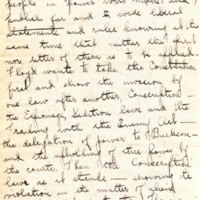 people in power who make and
far and wide liberal
statements and rules knowing at the
same time that neither the spirit
nor letter of them is to be applied.
Lloyd wants to take the Constitution
first and show the invasion by
one law after another, Conscription -
the Espionage, Sedition law and the
Trading with the Enemy Act -
the delegation of power to Burleson -
and the upholding of the power by
the courts. Then the Conscription
law as it stands - showing its
violation in the matter of